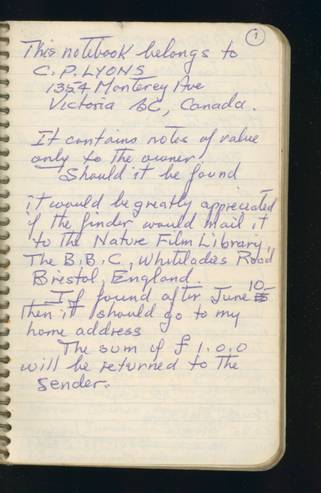 1
This notebook belongs to
C. P. LYONS
1354 Monterey Ave
Victoria BC, Canada.
It contains notes of value
only to the owner.
Should it be found
it would be greatly appreciated
if the finder would mail it
to the Nature Film Library,
The B.B.C, Whiteladies Road
Bristol, England.
If found after June 10
then it should go to my
home address
The sum of £ 1.0.0
will be returned to the
sender.